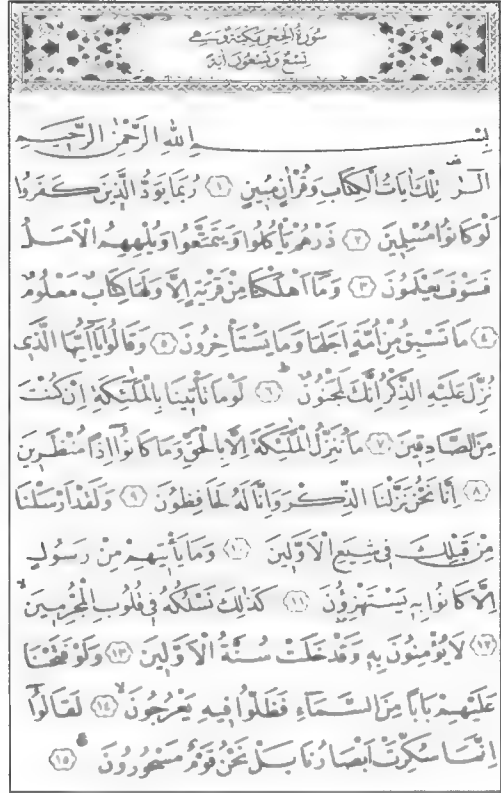 سُورَةُ الْحِجْرِ مَكِّيَّةٌ وَهِيَ
تِسْعٌ وَتِسْعُونَ اٰيَةً
بِسْمِ اللّٰهِ الرَّحْمٰنِ الرَّحِيمِ
الٓرٰ تِلْكَ اٰيَاتُ الْكِتَابِ وَقُرْاٰنٍ مُبِينٍ ﴿١﴾ رُبَمَا يَوَدُّ الَّذِينَ كَفَرُوا
لَوْ كَانُوا مُسْلِمِينَ ﴿٢﴾ ذَرْهُمْ يَأْكُلُوا وَيَتَمَتَّعُوا وَيُلْهِهِمُ الْاَمَلُ
فَسَوْفَ يَعْلَمُونَ ﴿٣﴾ وَمَٓا اَهْلَكْنَا مِنْ قَرْيَةٍ اِلَّا وَلَهَا كِتَابٌ مَعْلُومٌ
﴿٤﴾ مَا تَسْبِقُ مِنْ اُمَّةٍ اَجَلَهَا وَمَا يَسْتَأْخِرُونَ ﴿٥﴾ وَقَالُوا يَٓا اَيُّهَا الَّذِي
نُزِّلَ عَلَيْهِ الذِّكْرُ اِنَّكَ لَمَجْنُونٌ ﴿٦﴾ لَوْ مَا تَأْتِينَا بِالْمَلٰٓئِكَةِ اِنْ كُنْتَ
مِنَ الصَّادِقِينَ ﴿٧﴾ مَا نُنَزِّلُ الْمَلٰٓئِكَةَ اِلَّا بِالْحَقِّ وَمَا كَانُٓوا اِذًا مُنْظَرِينَ
﴿٨﴾ اِنَّا نَحْنُ نَزَّلْنَا الذِّكْرَ وَاِنَّا لَهُ لَحَافِظُونَ ﴿٩﴾ وَلَقَدْ اَرْسَلْنَا
مِنْ قَبْلِكَ فِي شِيَعِ الْاَوَّلِينَ ﴿١٠﴾ وَمَا يَأْتِيهِمْ مِنْ رَسُولٍ
اِلَّا كَانُوا بِهِ يَسْتَهْزِؤُنَ ﴿١١﴾ كَذٰلِكَ نَسْلُكُهُ فِي قُلُوبِ الْمُجْرِمِينَ
﴿١٢﴾ لَا يُؤْمِنُونَ بِهِ وَقَدْ خَلَتْ سُنَّةُ الْاَوَّلِينَ ﴿١٣﴾ وَلَوْ فَتَحْنَا
عَلَيْهِمْ بَابًا مِنَ السَّمَٓاءِ فَظَلُّوا فِيهِ يَعْرُجُونَ ﴿١٤﴾ لَقَالُٓوا
اِنَّمَا سُكِّرَتْ اَبْصَارُنَا بَلْ نَحْنُ قَوْمٌ مَسْحُورُونَ ﴿١٥﴾